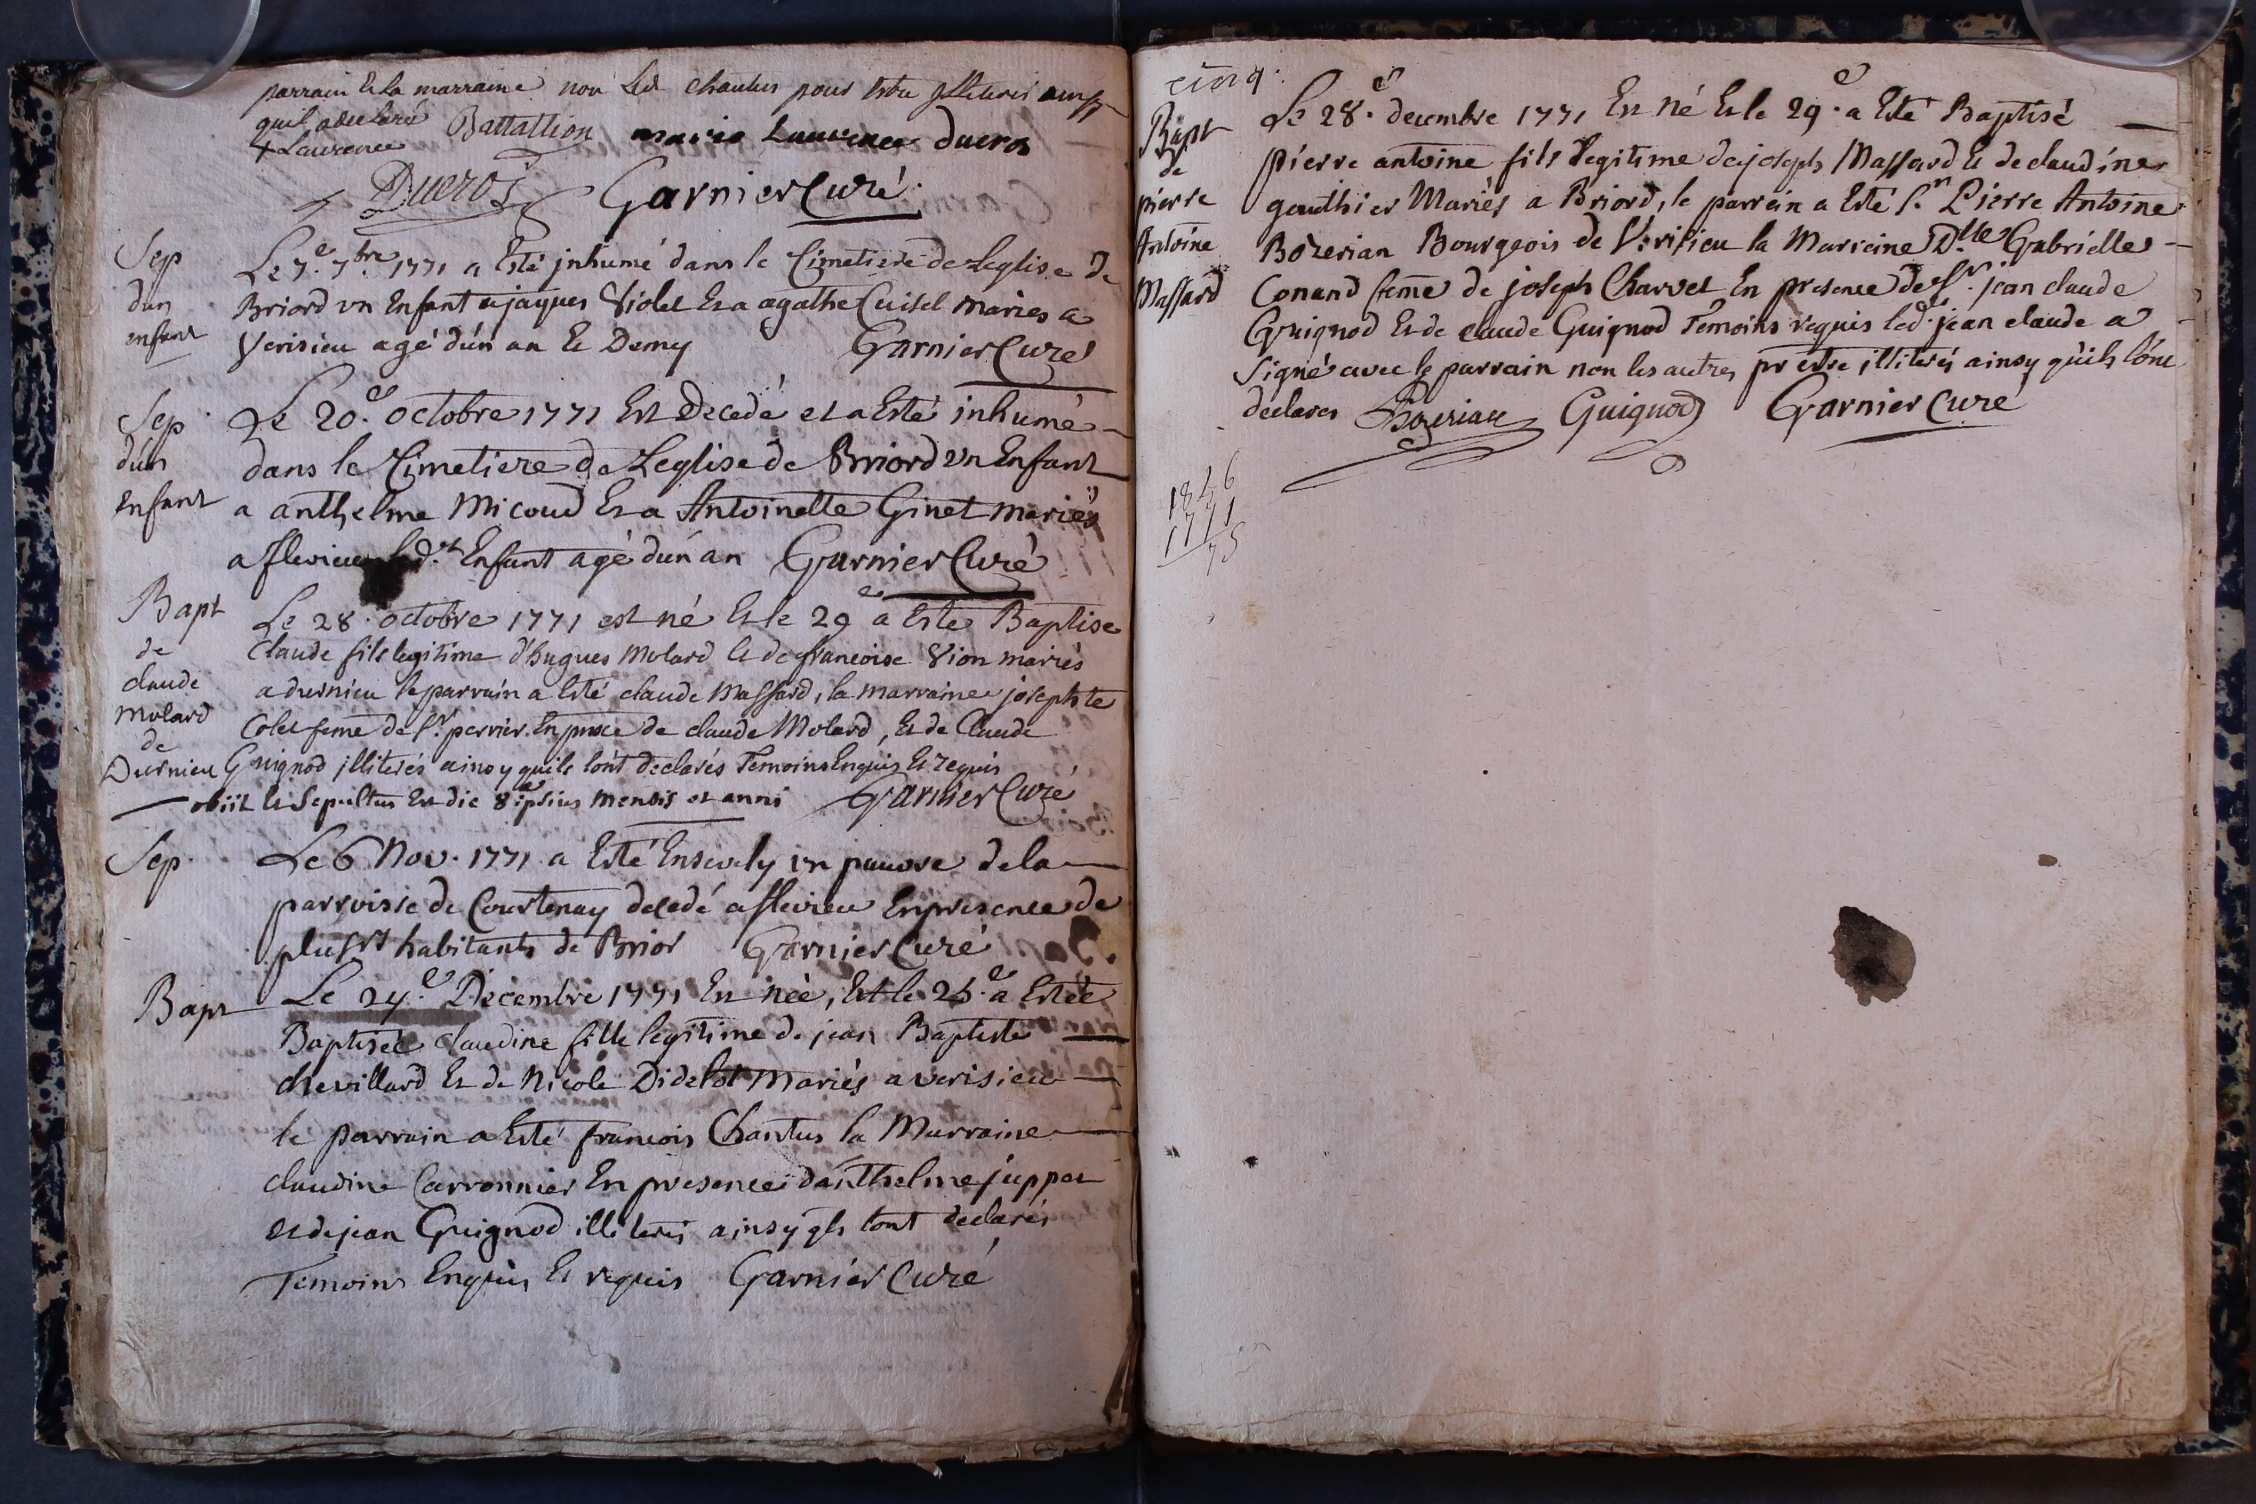 parrain Et la marraine non Led chantus pour Estre illiterés ainsy
quil a declaré
+ Laurence Battallion marie Laurence ducros
Ducros Garnier Curé
Sep
dun
enfant
Le 7.e 7bre 1771 a Esté jnhumé dans le Cimetiere de Leglise de
Briord vn Enfant a jaques Violet Et a agathe Cuisel maries a
Verisieu agé dún an Et Demy Garnier Curé
Sep
dún
Enfant
Le 20.e octobre 1771 Est Decedé et a Esté inhumé
dans le Cimetiere de Leglise de Briord vn Enfant
a anthelme Micoud Et a Antoinette Ginet mariés
a flevieu led.t Enfant agé dún an Garnier Curé
Bapt
de
claude
Molard
de
Durnieu
Le 28.e octobre 1771 est né Et le 29 a Esté Baptise
Claude fils legitime d'hugues Molard Et de francoise Vion mariés
a durnieu le parrain a Esté claude Massard, la marraine josephte
Colet feme de Sr. perrier. En pnce de claude Molard, Et de Claude
Guignod jlliterés ainsy quils lónt declarés Temoins Enquis Et requis
obiit Et Sepultus Est die 8a ipsius mensis et anni Garnier Curé
Sep.
Le 6 Nov. 1771 a Esté Ensevely vn pauvre de la
parroisse de Courtenay decedé a flevieu En presence de
plusrs habitants de Brior Garnier Curé
Bapt
Le 24.e Décembre 1771 Est née, Et le 25.e a Estée
Baptisée claudine fille legitime de jean Baptiste
chevillard Et de Nicole Didelot Mariés a verisieu
le parrain a Esté francois Chantus la Marraine
claudine Carronnier En presence dánthelme juppet
et de jean Guignod illiterés ainsy qls lont declarés
Temoins Enquis Et requis Garnier Curé
cinq.
Bapt
de
pierre
Antoine
Massard
Le 28.e decembre 1771 Est né Et le 29.e a Esté Baptisé
pierre antoine fils legitime de joseph Massard Et de claudine
gouthier Mariés a Briord, le parrain a Esté Sr Pierre Antoine
Bozerian Bourgeois de Verisieu la Marreine D.lle Gabrielle
Conand feme de joseph Charvet En presence de Sr. jean claude
Guignod Et de claude Guignod Temoins requis led. jean claude a
Signé avec le parrain non les autres pr estre illiterés ainsy qúils lónt
declarés Bozerian Guignod Garnier Curé
1846
1771
75